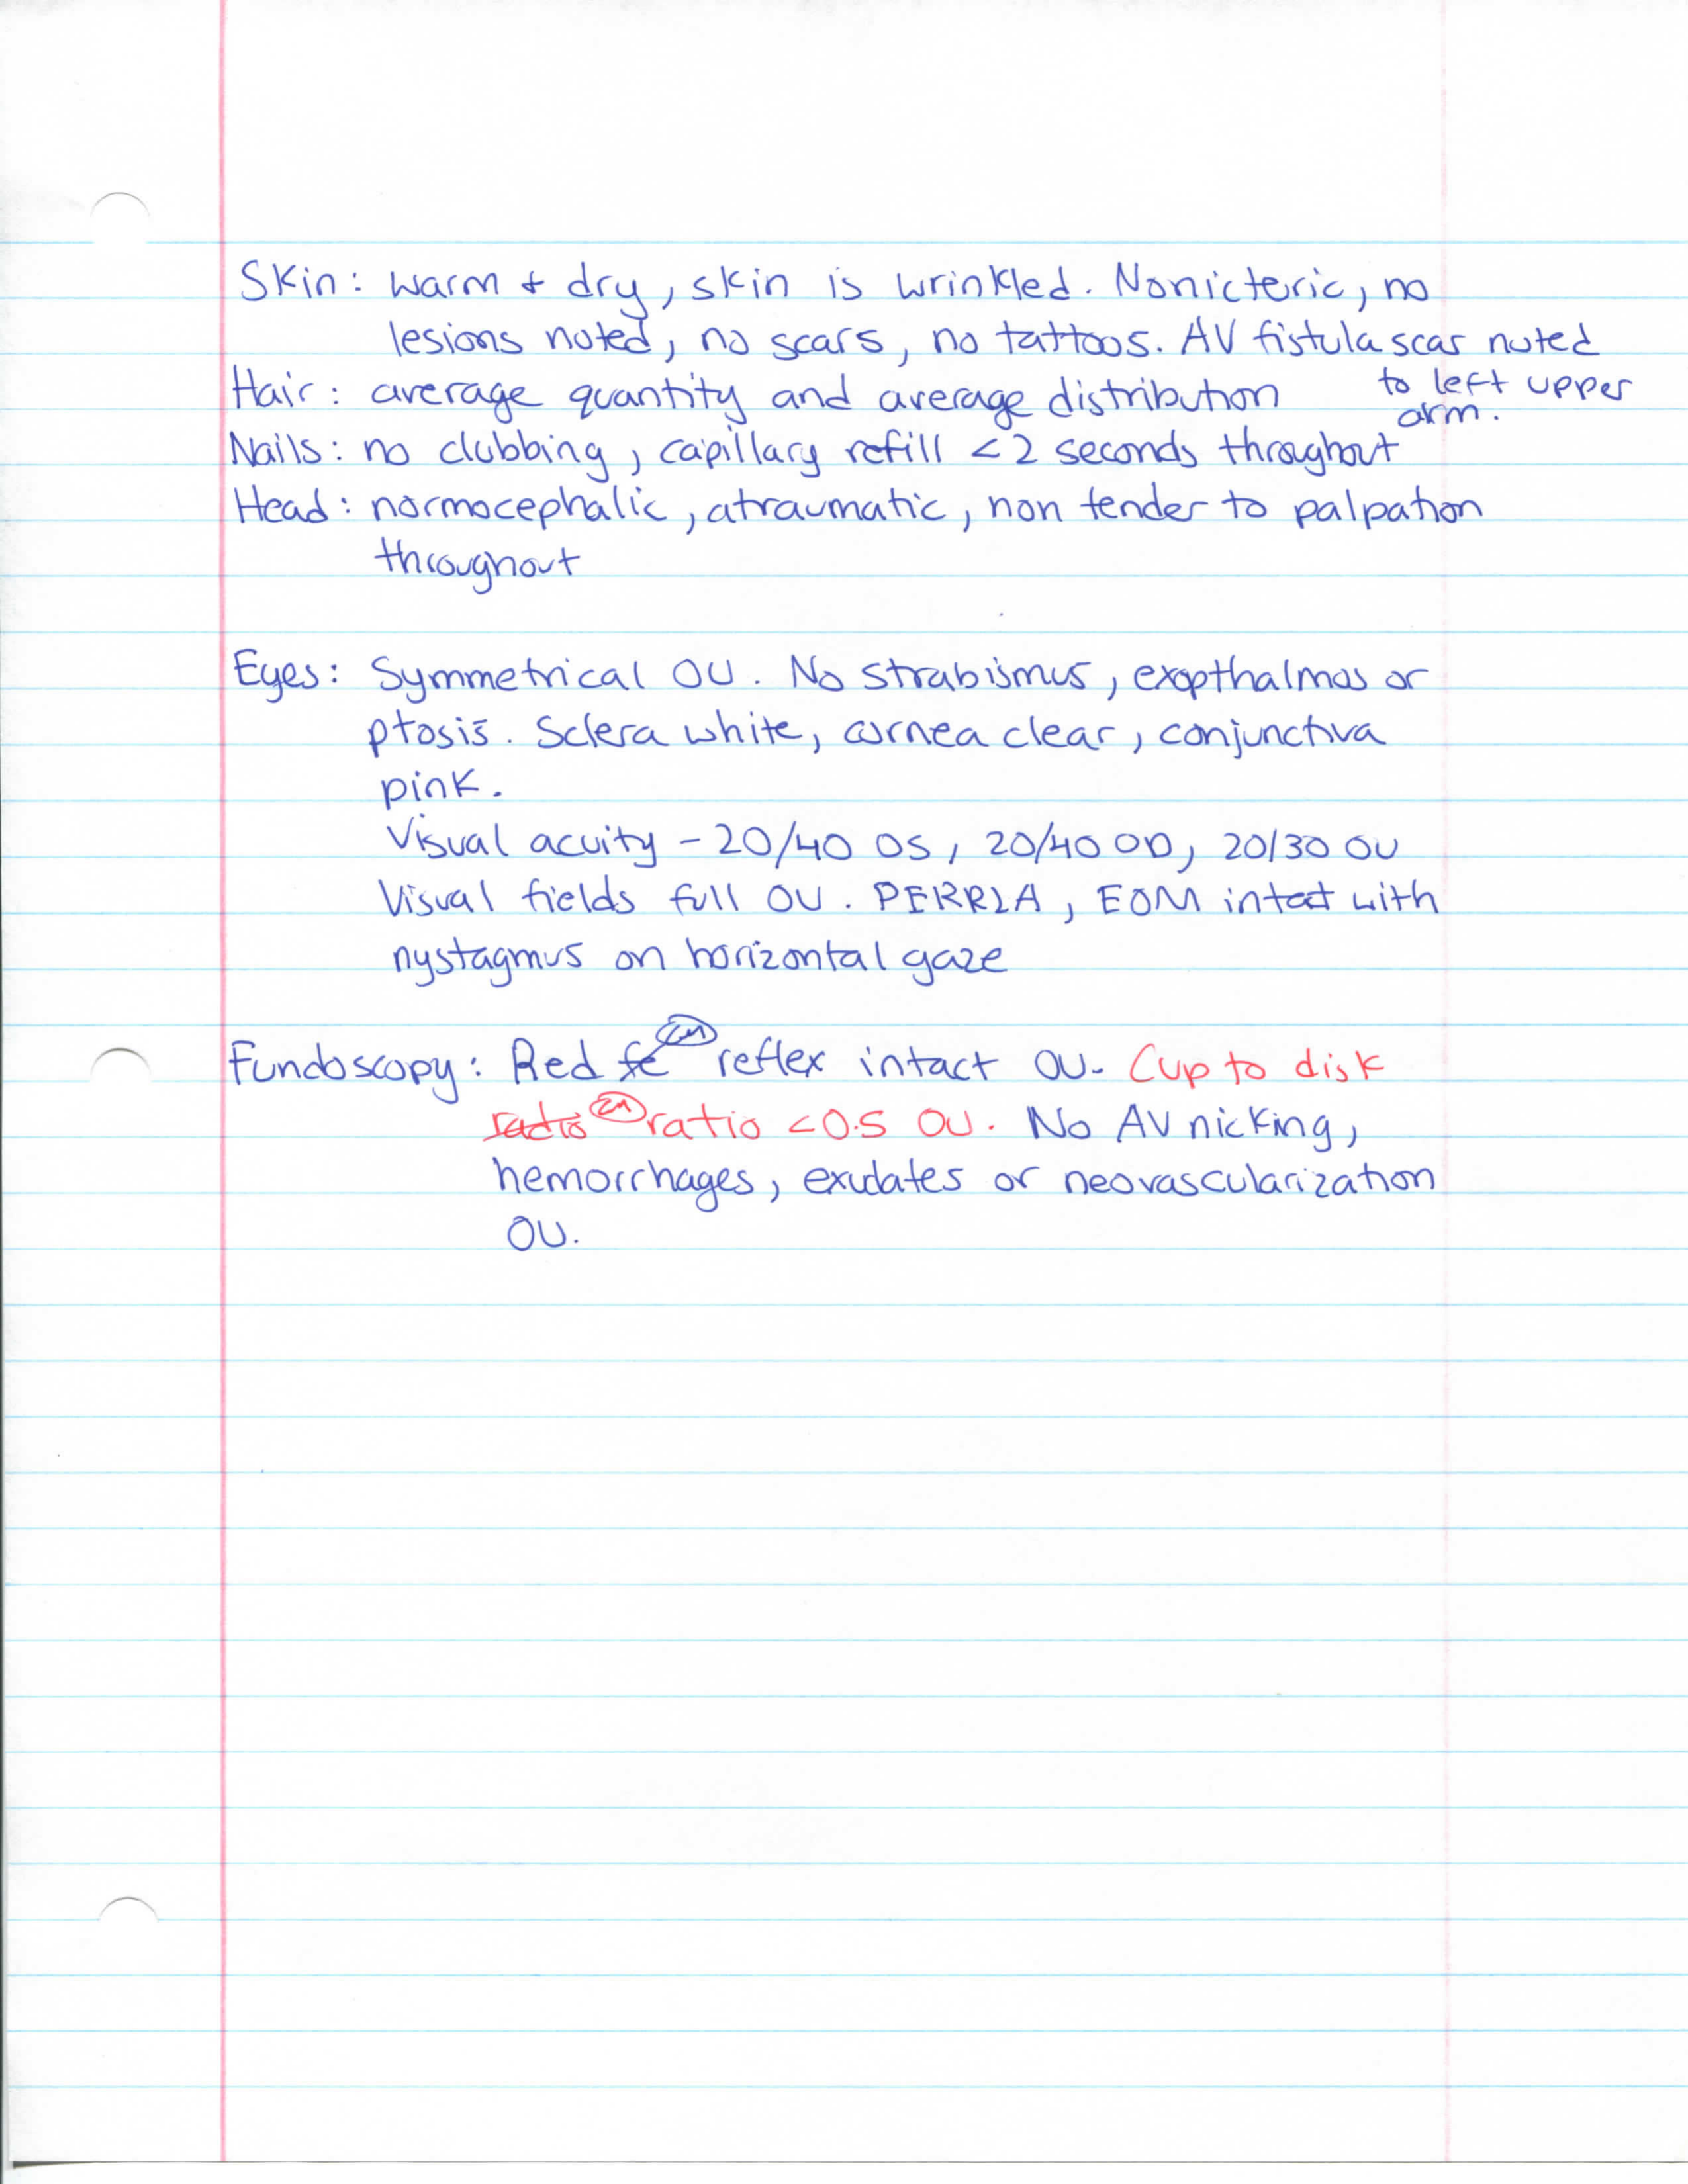 Skin: warm + dry, skin is wrinkled. Nonicteric, no
lesions noted, no scars, no tattoos. AV fistula scar noted
to left upper
arm.
Hair: average quantity and average distribution
Nails: no clubbing, capillary refill <2 seconds throughout
Head: normocephalic, atraumatic, non tender to palpation
throughout
Eyes: Symmetrical OU. No strabismus, exopthalmos or
ptosis. Sclera white, cornea clear, conjunctiva
pink.
Visual acuity - 20/40 OS, 20/40 OD, 20/30 OU
Visual fields full OU. PERRLA, EOM intact with
nystagmus on horizontal gaze
Fundoscopy: Red fe reflex intact OU. Cup to disk
radio ratio <0.5 OU. No AV nicking,
hemorrhages, exudates or neovascularization
OU.